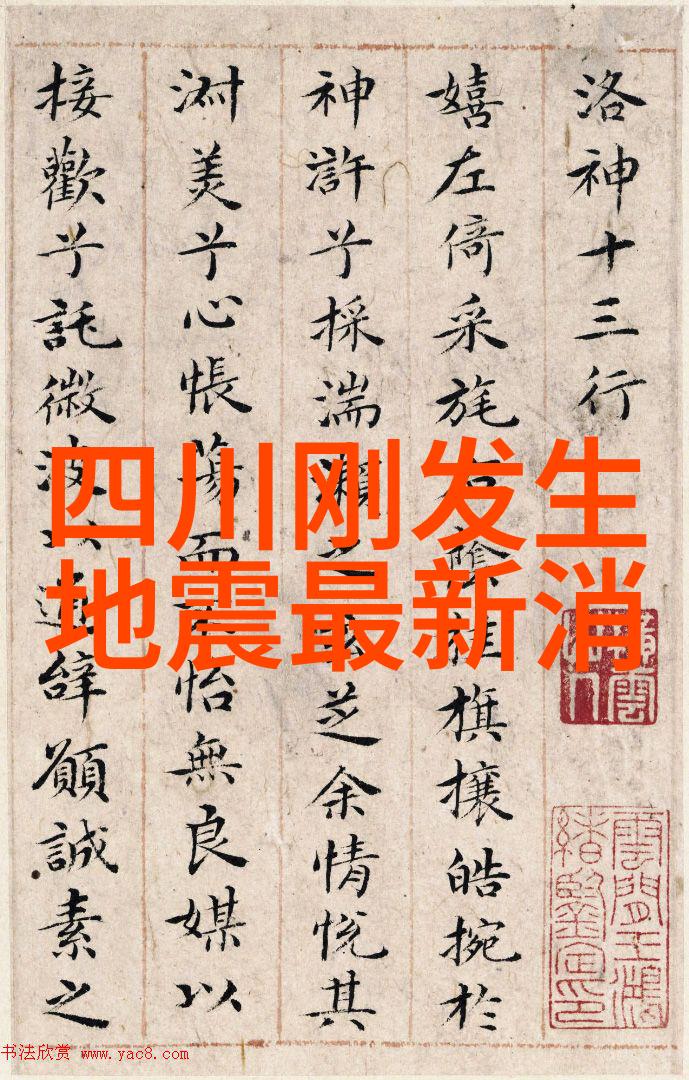 洛神十三行
嬉左倚采旄右蔭桂旗攘皓捥於
神滸兮採湍瀨之玄芝余情悅其
淑美兮心悵蕩而不怡無良媒以
接歡兮託微波以通辭願誠素之
四川刚发生
地震最新消
雲間王鴻
緒鑒定印
书法欣赏 www.yac8.com